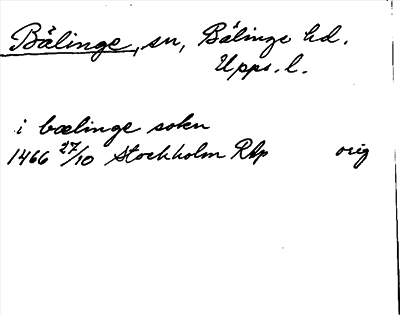 Bälinge, sn, Bälinge hd.
Upps. l.
i bælinge sokn
1466 27/10 Stockholm RAp orig